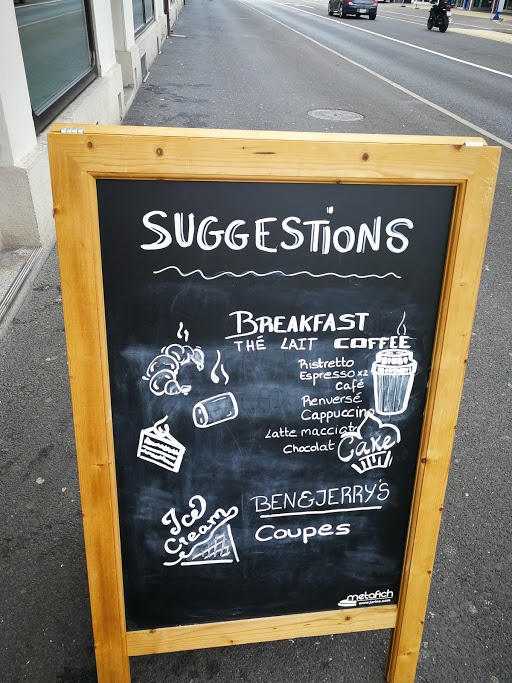 SUGGESTIONS
BREAKFAST
THÉ LAIT COFFEE
Ristretto
Espresso x2
Café
Renversé
Cappuccino
Latte macciato
Chocolat
Cake
Ice
Cream
BEN&JERRY'S
Coupes
metafich